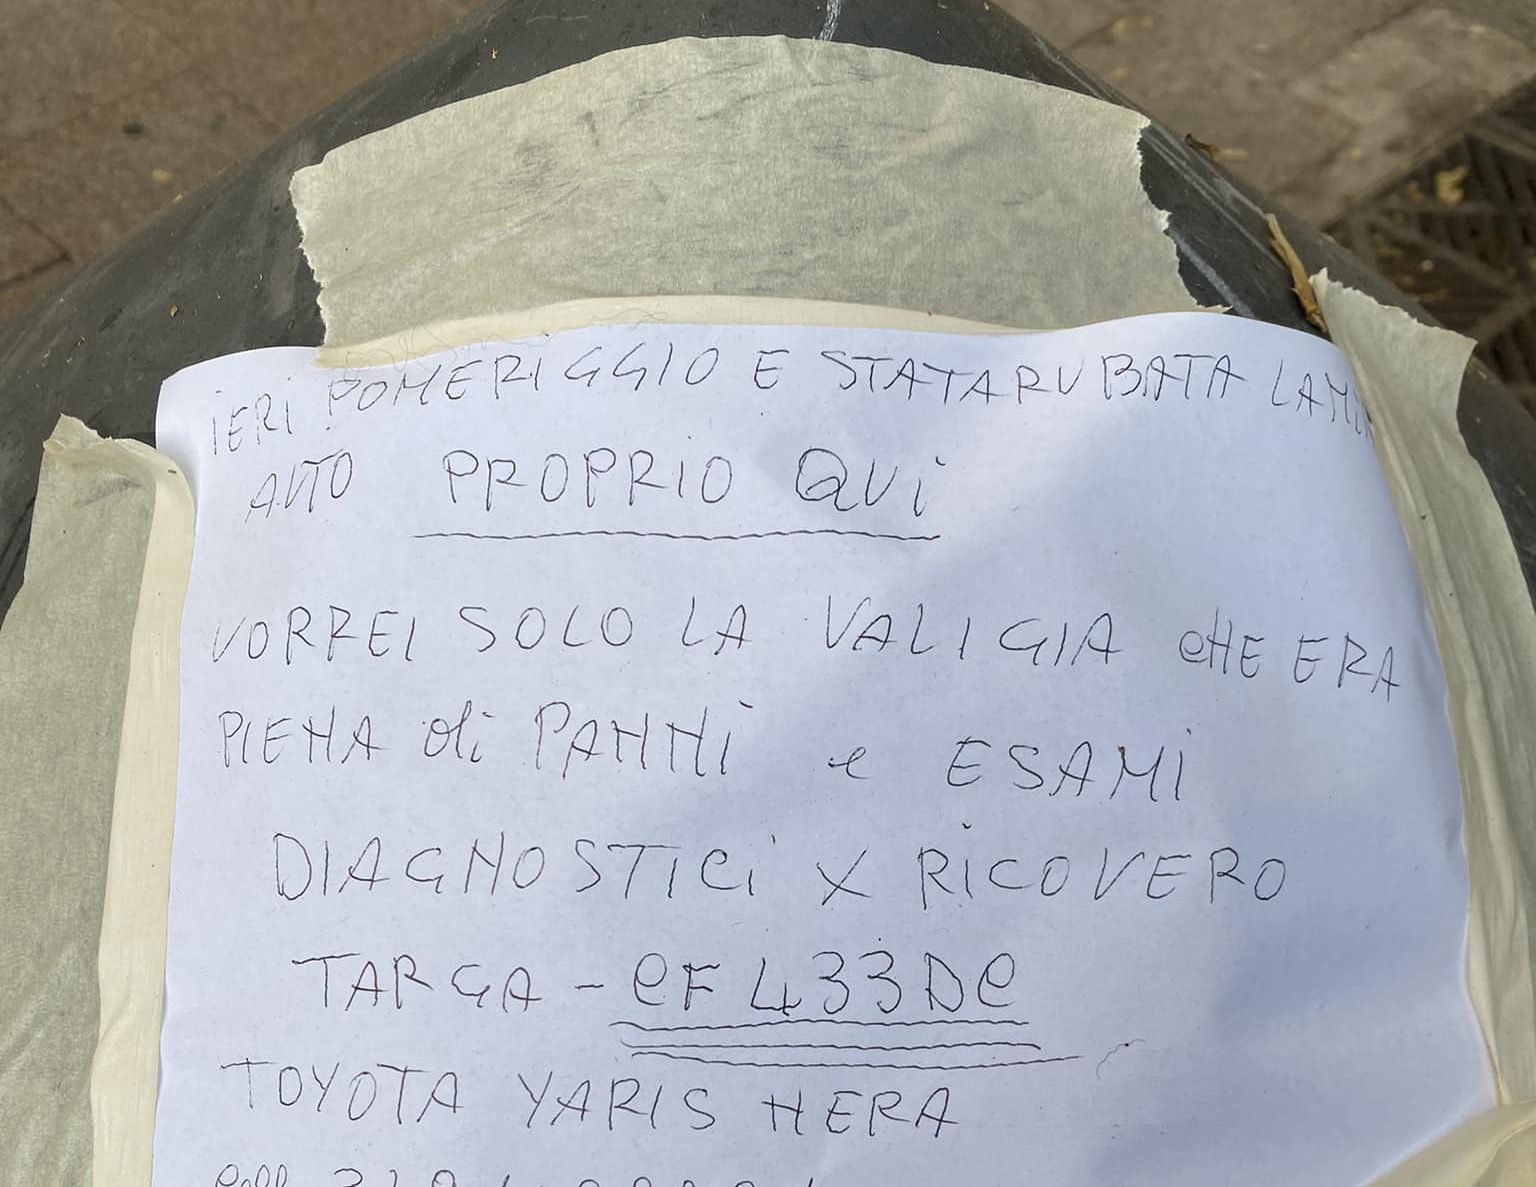 IERI POMERIGGIO E STATA RUBATA LA MIA
AUTO PROPRIO QUI
VORREI SOLO LA VALIGIA CHE ERA
PIENA di PANNI e ESAMI
DIAGNOSTICI X RICOVERO
TARGA - eF 433De
TOYOTA YARIS NERA